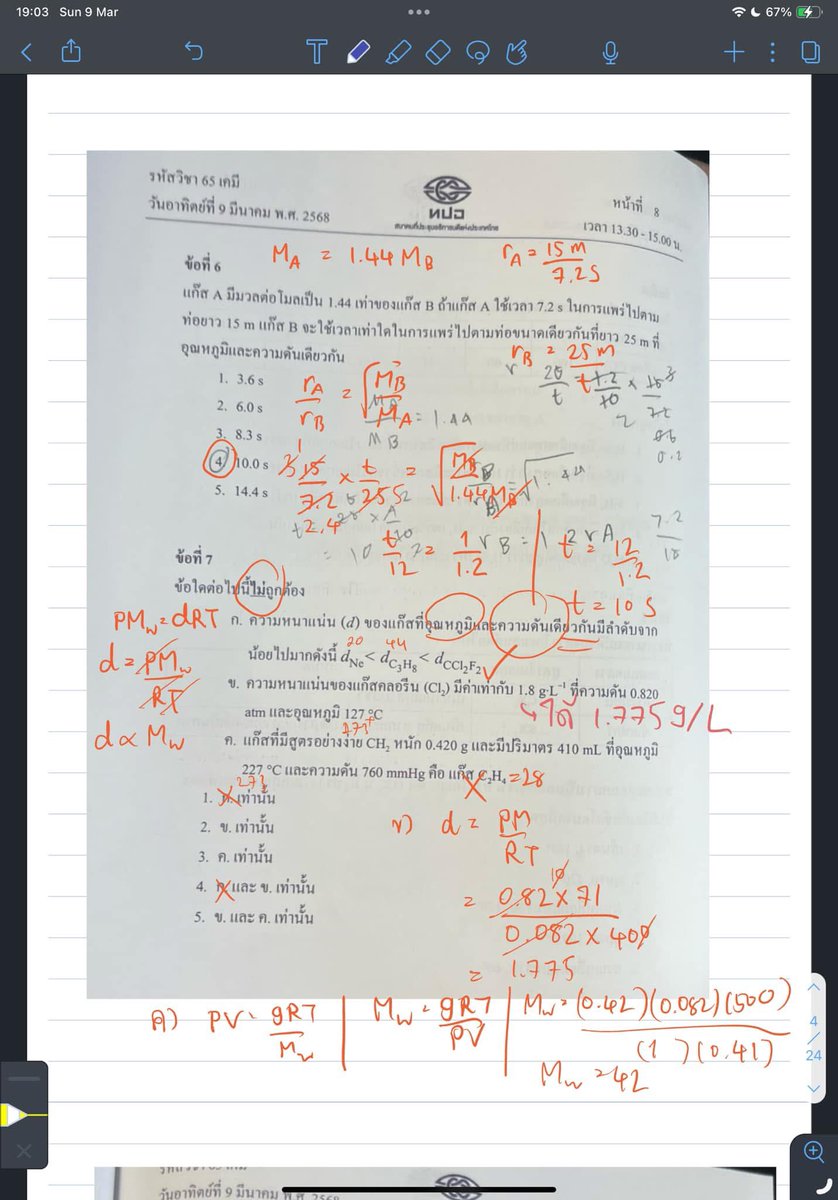 19:03 Sun 9 Mar
67%
รหัสวิชา 65 เคมี
วันอาทิตย์ที่ 9 มีนาคม พ.ศ. 2568
ทปอ
สมาคมที่ประชุมอธิการบดีแห่งประเทศไทย
หน้าที่ 8
เวลา 13.30 - 15.00 น.
M_A = 1.44 M_B
r_A = 15 m / 7.2 s
ข้อที่ 6
แก๊ส A มีมวลต่อโมลเป็น 1.44 เท่าของแก๊ส B ถ้าแก๊ส A ใช้เวลา 7.2 s ในการแพร่ไปตาม
ท่อยาว 15 m แก๊ส B จะใช้เวลาเท่าใดในการแพร่ไปตามท่อขนาดเดียวกันที่ยาว 25 m ที่
อุณหภูมิและความดันเดียวกัน
r_B = 25 m / t
1. 3.6 s
2. 6.0 s
3. 8.3 s
4. 10.0 s
5. 14.4 s
r_A / r_B = √ M_B / M_A
15 / 7.2 × t / 25 = √ M_B / 1.44 M_B
t / 12 = 1 / 1.2
t = 12 / 1.2
t = 10 s
ข้อที่ 7
ข้อใดต่อไปนี้ไม่ถูกต้อง
PM_w = dRT
ก. ความหนาแน่น (d) ของแก๊สที่อุณหภูมิและความดันเดียวกันมีลำดับจาก
20 44
d = PM_w / RT
น้อยไปมากดังนี้ d_Ne < d_C3H8 < d_CCl2F2
ข. ความหนาแน่นของแก๊สคลอรีน (Cl₂) มีค่าเท่ากับ 1.8 g·L⁻¹ ที่ความดัน 0.820
atm และอุณหภูมิ 127 °C
ได้ 1.775 g/L
d ∝ M_w
273+
ค. แก๊สที่มีสูตรอย่างง่าย CH₂ หนัก 0.420 g และมีปริมาตร 410 mL ที่อุณหภูมิ
227 °C และความดัน 760 mmHg คือ แก๊ส C₂H₄ = 28
273
1. ก. เท่านั้น
2. ข. เท่านั้น
3. ค. เท่านั้น
4. ก. และ ข. เท่านั้น
5. ข. และ ค. เท่านั้น
ข) d = PM / RT
= 0.82 × 71 / 0.082 × 400
= 1.775
ค) PV = gRT / M_w
M_w = gRT / PV
M_w = (0.42)(0.082)(500) / (1)(0.41)
M_w = 42
4 / 24
วันอาทิตย์ที่ 9 มีนาคม พ.ศ. 2568